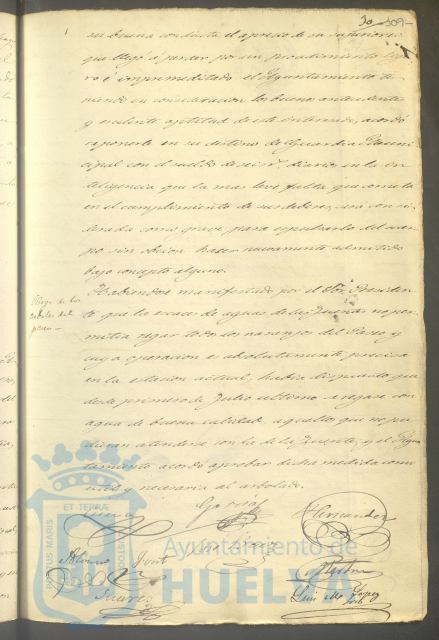 30 109
su buena conducta el aprecio de sus superiores
que llegó á perder por un procedimiento
é impremeditado el Ayuntamiento te-
niendo en consideracion los buenos antecedentes
y escelente aptitud de este interesado, acordó
reponerle en su destino de Guardia Muni-
cipal con el sueldo de seis r.s diarios en la in-
teligencia que la mas leve falta que cometa
en el cumplimiento de sus deberes, será consi-
derada como grave para espulsarlo del cuer-
po sin opcion haser nuevamente admitido
bajo concepto alguno.
Riego de los
arboles del
paseo
Habiendose manifestado por el Sor. Presiden-
te que lo escaso de aguas de las fuentes no per-
mitia regar todos los naranjos del Paseo y
cuya operacion es absolutamente precisa
en la estacion actual, habia dispuesto que
desde primero de Julio ultimo se regase con
agua de buena calidad aquellos que no pu-
dieran atenderse con la de la fuente, y el Ayun-
tamiento acordó aprobar dicha medida como
util y necesaria al arbolado.
Garcia
Hernandez
Alonso
Font
Suarez
Luis M. Lopez
PORTUS MARIS ET TERRÆ CUSTODIA
Ayuntamiento de
HUELVA